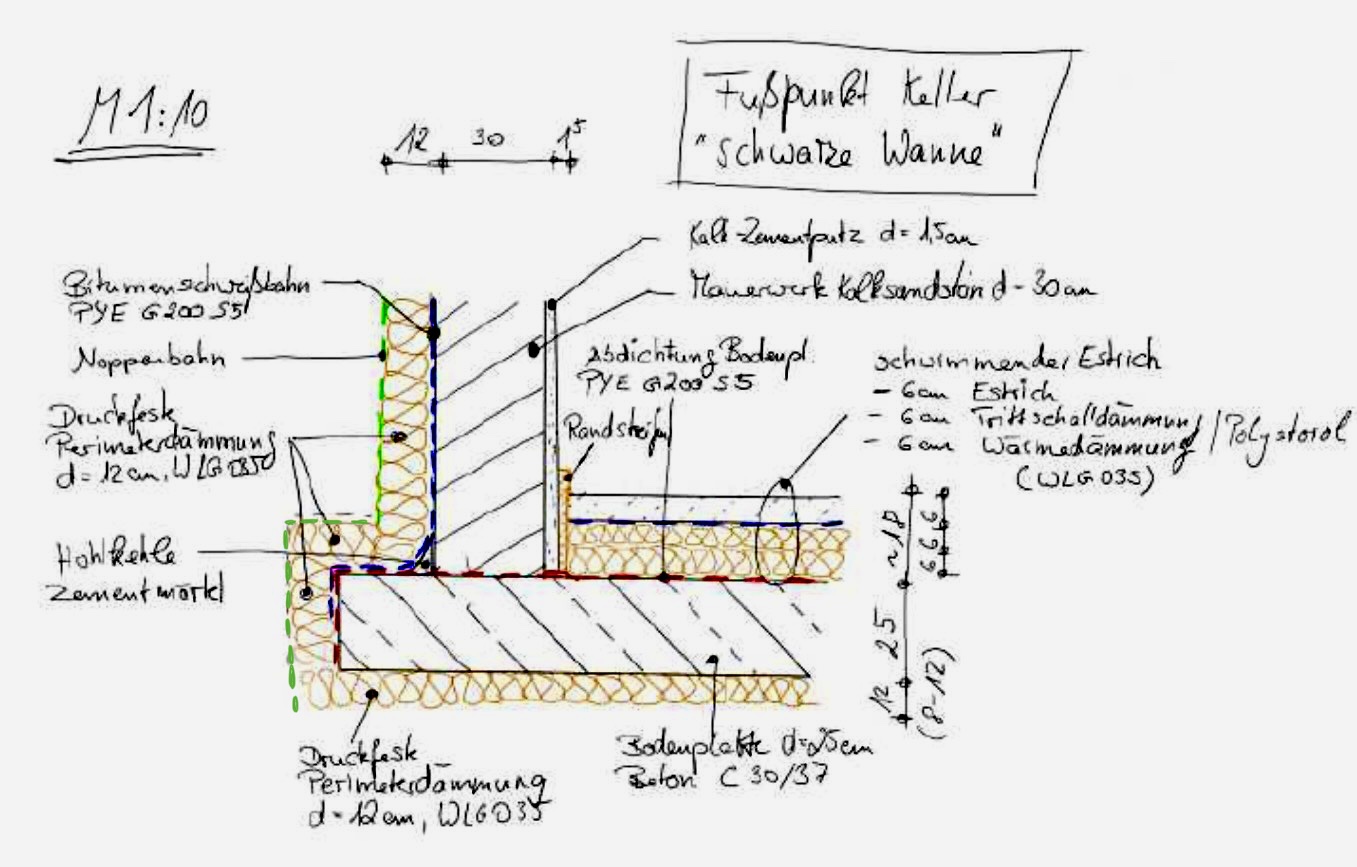 M 1:10
Fußpunkt Keller
"Schwarze Wanne"
12 30 1⁵
Kalk-Zementputz d= 1,5cm
Mauerwerk Kalksandstein d- 30cm
Bitumenschweißbahn
PYE G200 S5
Noppenbahn
Druckfeste
Perimeterdämmung
d= 12cm, WLG 035
Hohlkehle
Zementmörtel
Abdichtung Bodenpl.
PYE G200 S5
Randstreifen
schwimmender Estrich
- 6cm Estrich
- 6cm Trittschalldämmung / Polystorol
- 6cm Wärmedämmung
(WLG 035)
~18
6 6 6
25
12
(8-12)
Druckfeste
Perimeterdämmung
d= 12cm, WLG 035
Bodenplatte d=25cm
Beton C 30/37